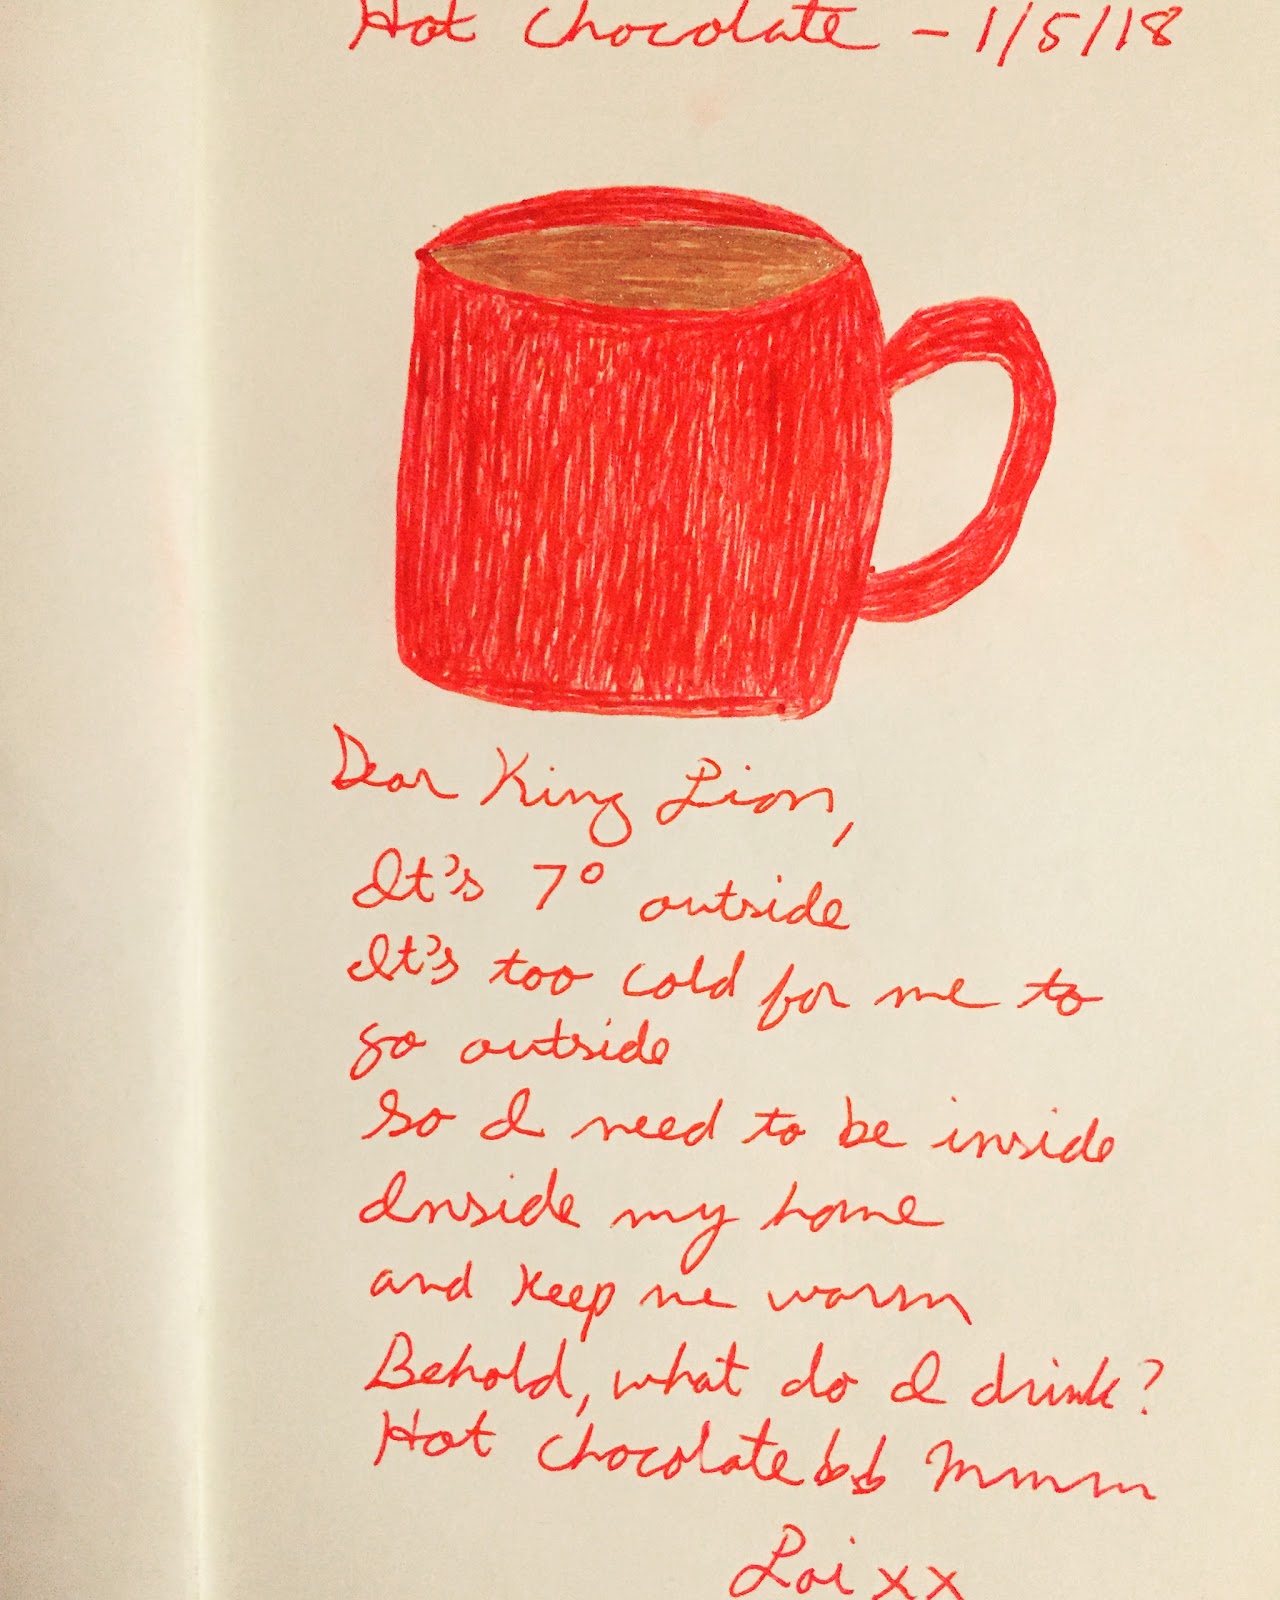 Hot Chocolate - 1/5/18
Dear King Lion,
It's 7° outside
It's too cold for me to
go outside
So I need to be inside
Inside my home
and keep me warm
Behold, what do I drink?
Hot chocolate!! Mmmm
Loi xx